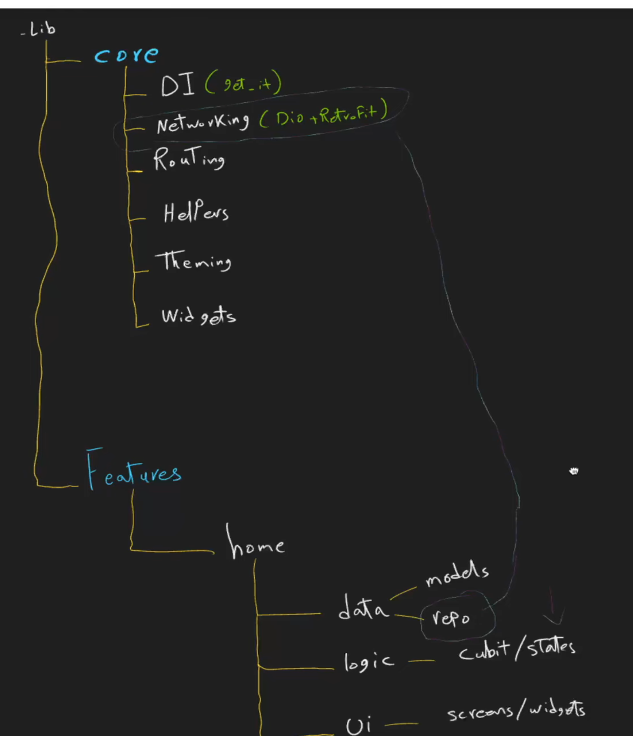 Lib
core
DI (get_it)
Networking (Dio + RetroFit)
Routing
Helpers
Theming
Widgets
Features
home
models
data
repo
logic — cubit/states
Ui — screens/widgets